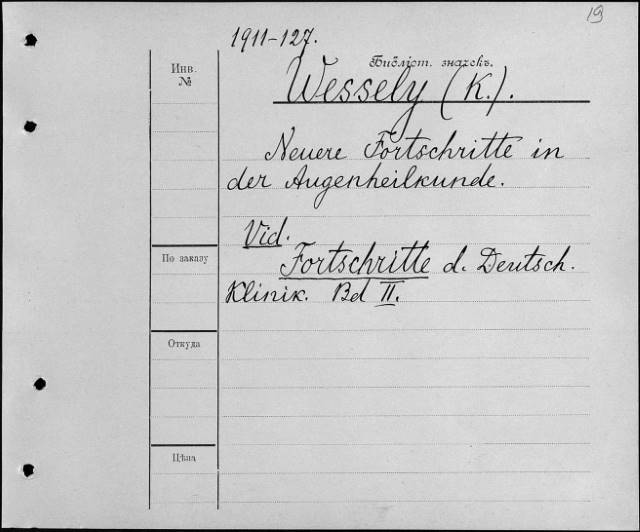 19
1911-127.
Библіот. значекъ.
Инв.
№
Wessely (K.).
Neuere Fortschritte in
der Augenheilkunde.
Vid.
Fortschritte d. Deutsch.
Klinik. Bd II.
По заказу
Откуда
Цѣна